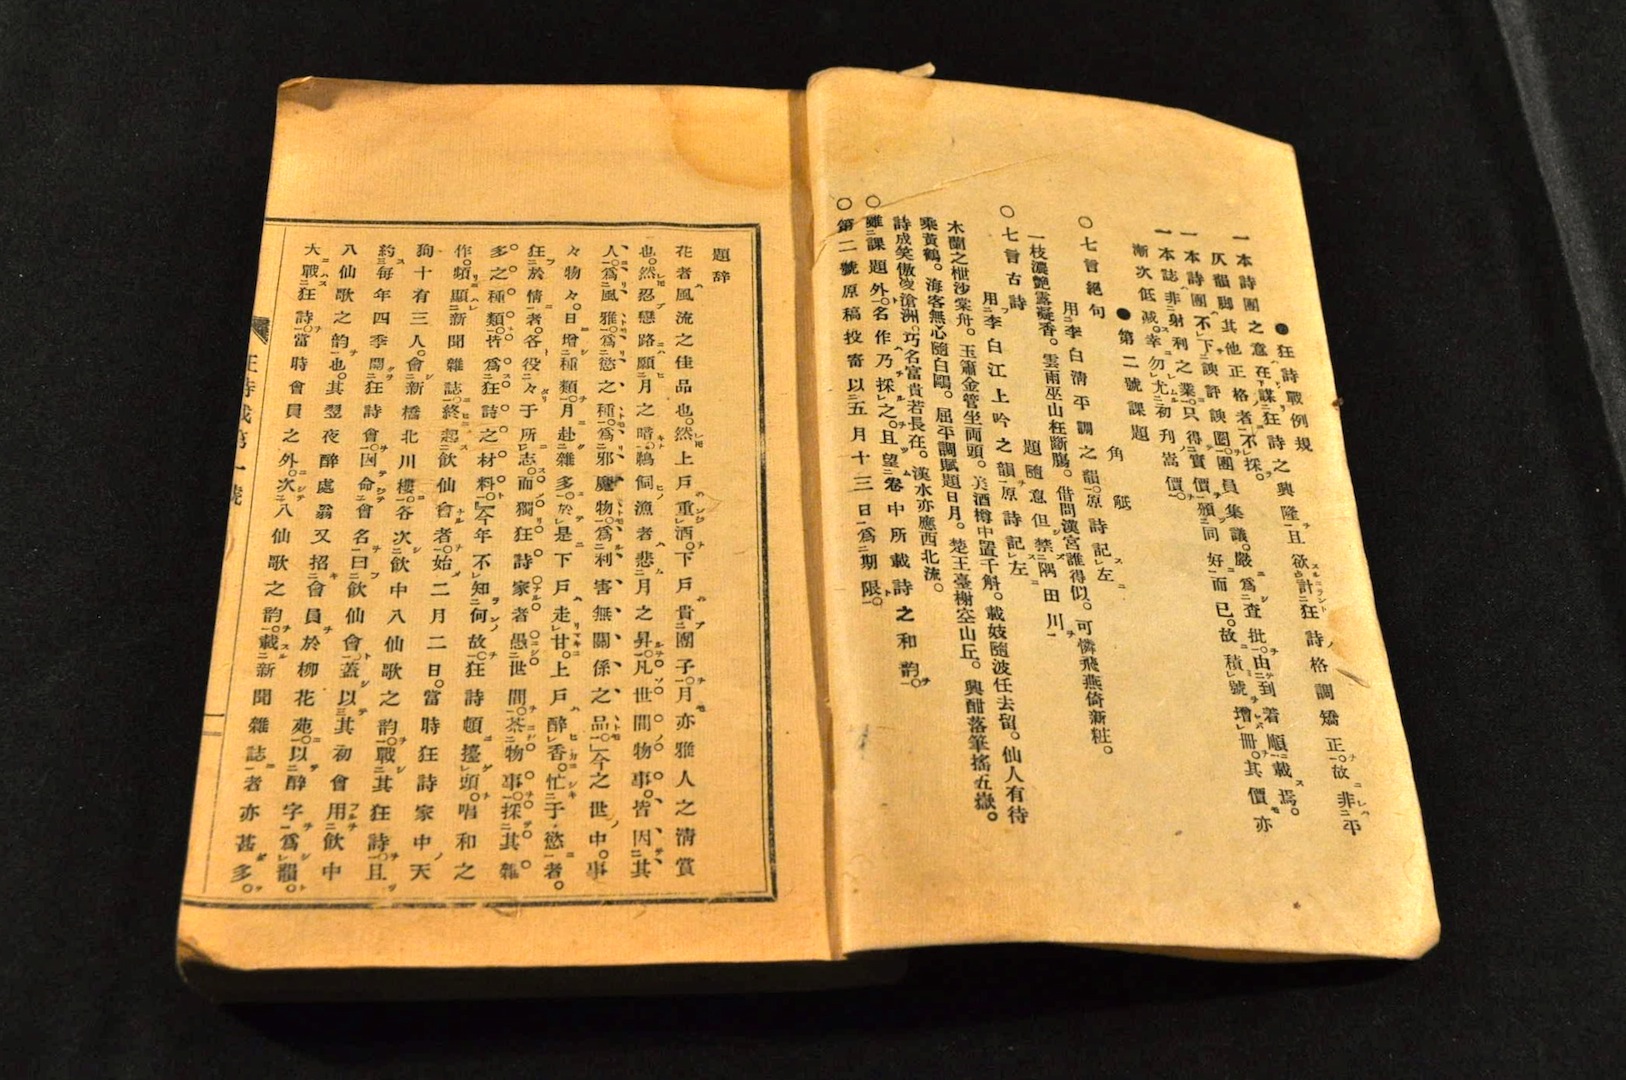 ●狂詩戰例規
一本詩團之意在謀狂詩之興隆且欲計狂詩格調矯正故非平
仄韻脚其他正格者不採
一本詩團不下諛評諛圈團員集議嚴爲査批由到着順載焉
一本誌非射利之業只得實價頒同好而已故積號增冊其價亦
漸次低减幸勿尤初刋嵩價
●第二號課題
角觝
○七言絕句
用李白淸平調之韻原詩記左
一枝濃艶露凝香。雲雨巫山枉斷膓。借問漢宮誰得似。可憐飛燕倚新粧。
題隨意但禁隅田川
○七言古詩
用李白江上吟之韻原詩記左
木蘭之枻沙棠舟。玉簫金管坐両頭。美酒樽中置千斛。載妓隨波任去留。仙人有待
乘黃鶴。海客無心隨白鷗。屈平調賦題日月。楚王臺榭空山丘。興酣落筆搖五嶽。
詩成笑傲凌滄洲。巧名富貴若長在。漢水亦應西北流。
○雖課題外名作乃採之且望卷中所載詩之和韵
○第二號原稿投寄以五月十三日爲期限
題辞
花者風流之佳品也。然上戶重酒。下戶貴團子。月亦雅人之淸賞
也。然忍戀路願月之暗。鵜飼漁者悲月之昇。凡世間物事。皆因其
人。爲風雅。爲慾之種。爲邪魔物。爲利害無關係之品。今之世中。事
々物々。日增種類。月赴雜多。於是下戶走甘。上戶醉香。忙于慾者。
狂於情者。各役々于所志。而獨狂詩家者愚世間。茶物事。採其雜
多之種類。皆爲狂詩之材料。今年不知何故。狂詩頓擡頭。唱和之
作。頻顯新聞雜誌。終起飮仙會者。始二月二日。當時狂詩家中天
狗十有三人。會新橋北川樓。各次飮中八仙歌之韵。戰其狂詩。且
約每年四季開狂詩會。因命會名曰飮仙會。蓋以其初會用飮中
八仙歌之韵也。其翌夜醉處翁又招會員於柳花苑。以醉字爲韻。
大戰狂詩。當時會員之外。次八仙歌之韵。載新聞雜誌者亦甚多。
狂詩戰第一號